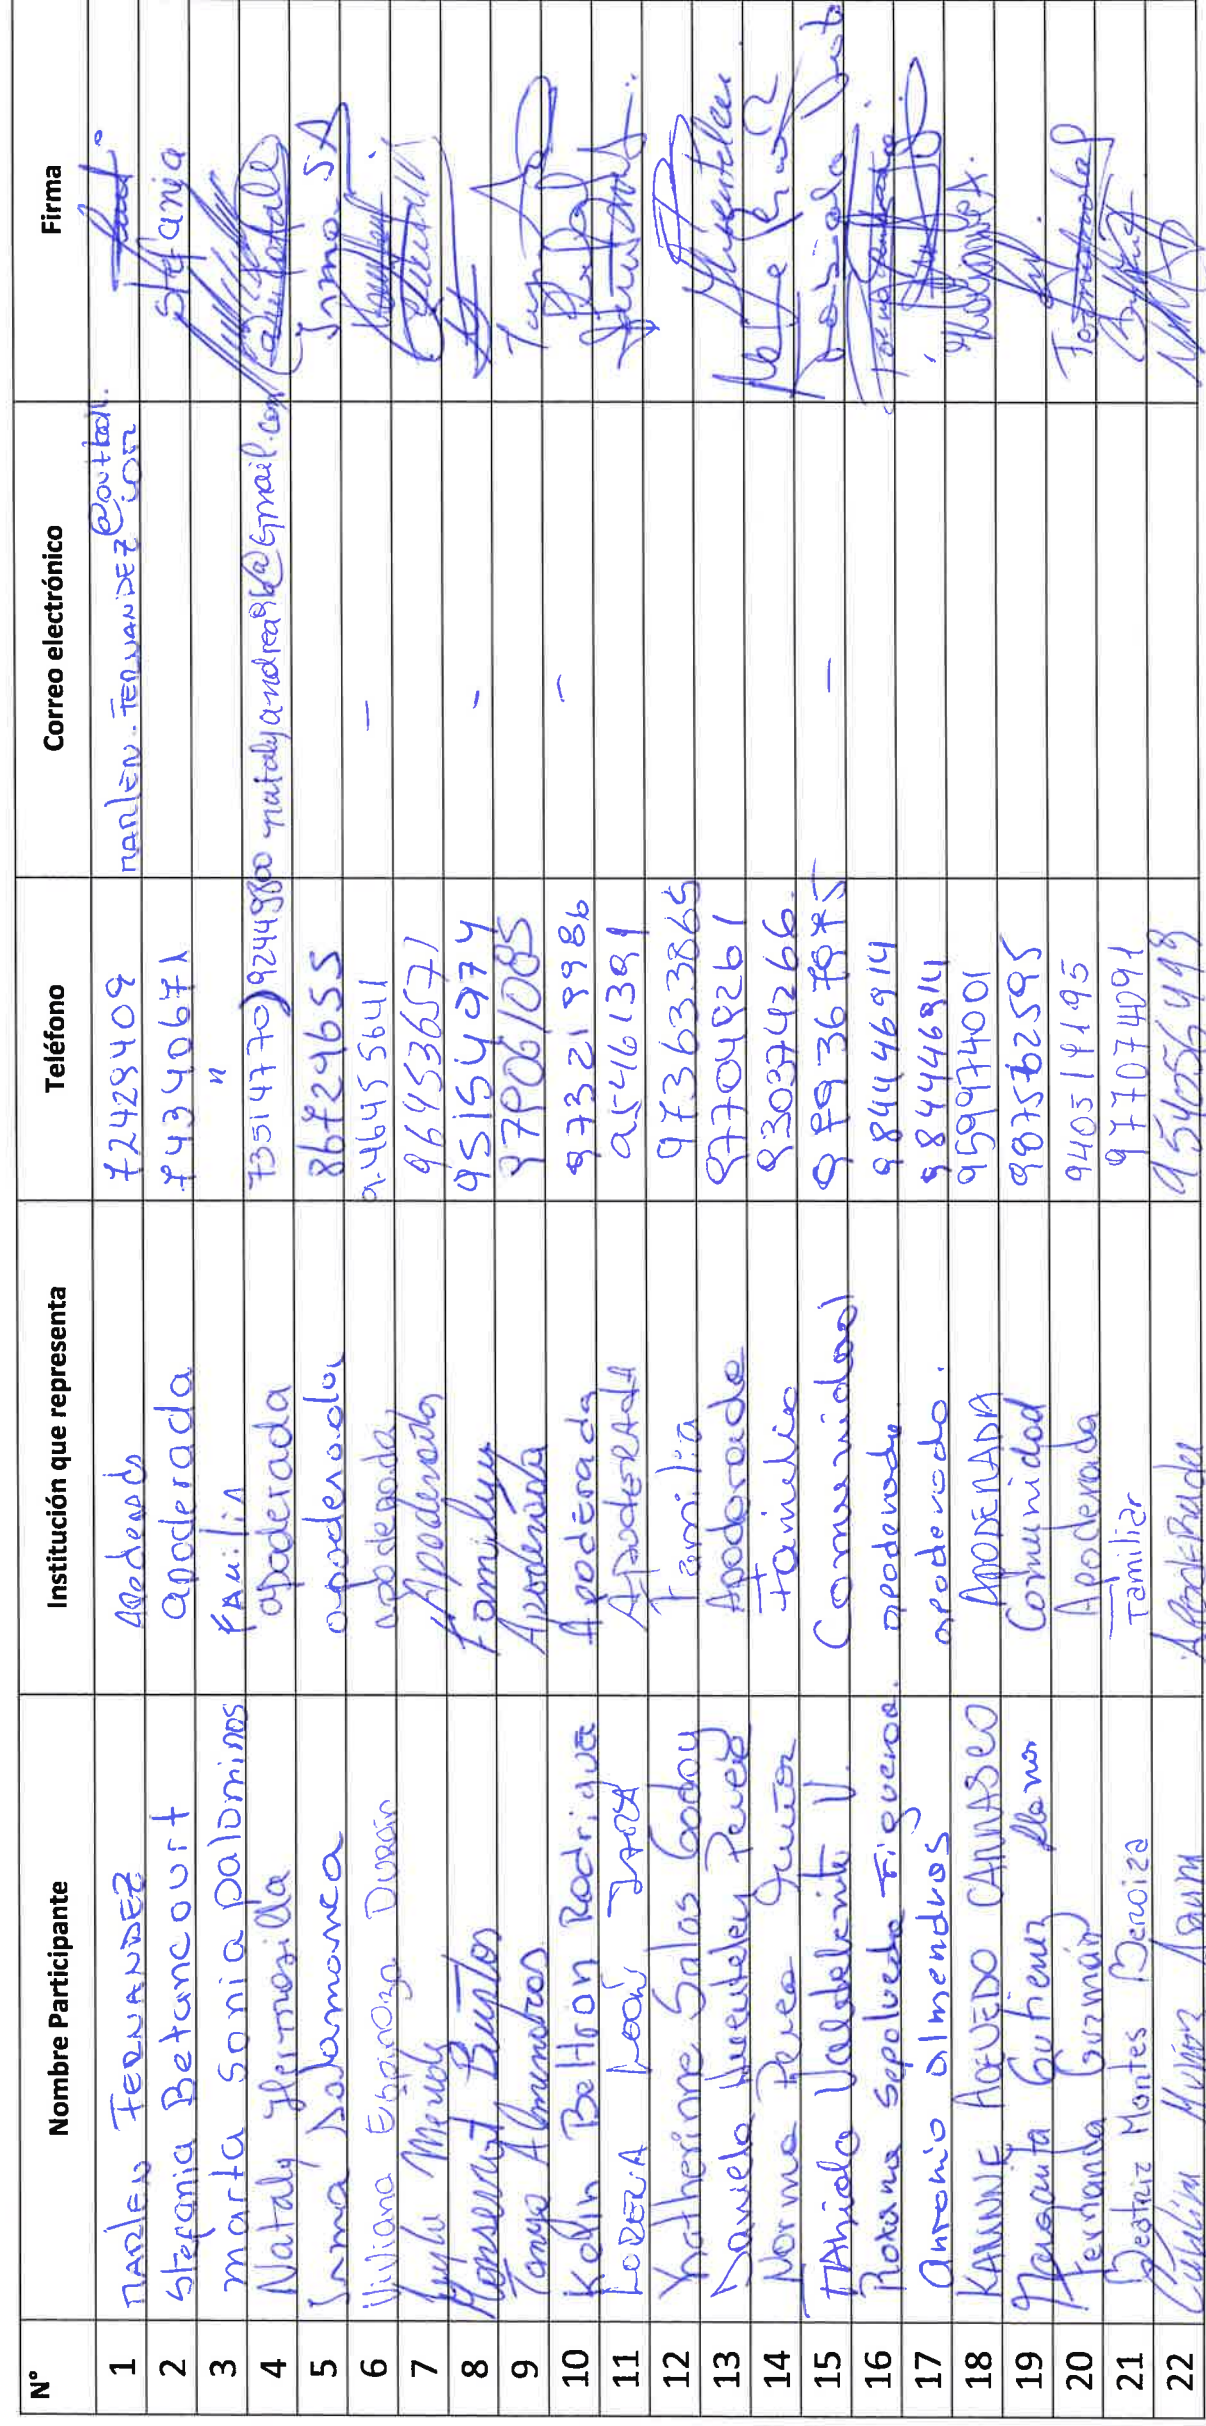 N° Nombre Participante Institución que representa Teléfono Correo electrónico Firma
1 MARLEN FERNANDEZ Apoderado 724294409 MARLEN.FERNANDEZ@outlook.com
2 Stefania Betancourt apoderada 74340671 Stefania
3 Marta Sonia Palominos FAMILIA "
4 Nataly Hermosilla apoderada 73514770)92449800 natalyandrea96@Gmail.com
5 Irma Salamanca apoderada 86724655 Irma SA
6 Viviana Espinoza Durán apoderada 9.46455641 –
7 Apoderada 964536571
8 Monserrat Bustos Family 951514974 -
9 Tanya Almendras Apoderada 979061085 Tanya
10 Kelin Beltron Rodrigue Apoderada 973219986 –
11 LORERIA León JARA APODERADA 954461391
12 Katherinne Salas Godoy Familia 973633865
13 Daniela Huentelen Perez Apoderada 977049261 Huentelen
14 Norma Perez Familia 930374266.
15 Valdebenito V. Comunidad 979367975 –
16 Roxana Sepulveda Figueroa. apoderada 984446914
17 Antonio Almendras apoderado. 984446914
18 KARINNE ACEVEDO CARRASCO APODERADA 959974001
19 Margarita Gutierrez Llanos Comunidad 987562595
20 Fernanda Guzmán Apoderada
21 Beatriz Montes Familiar 977074091
22 Muñoz Apoderada 954056499